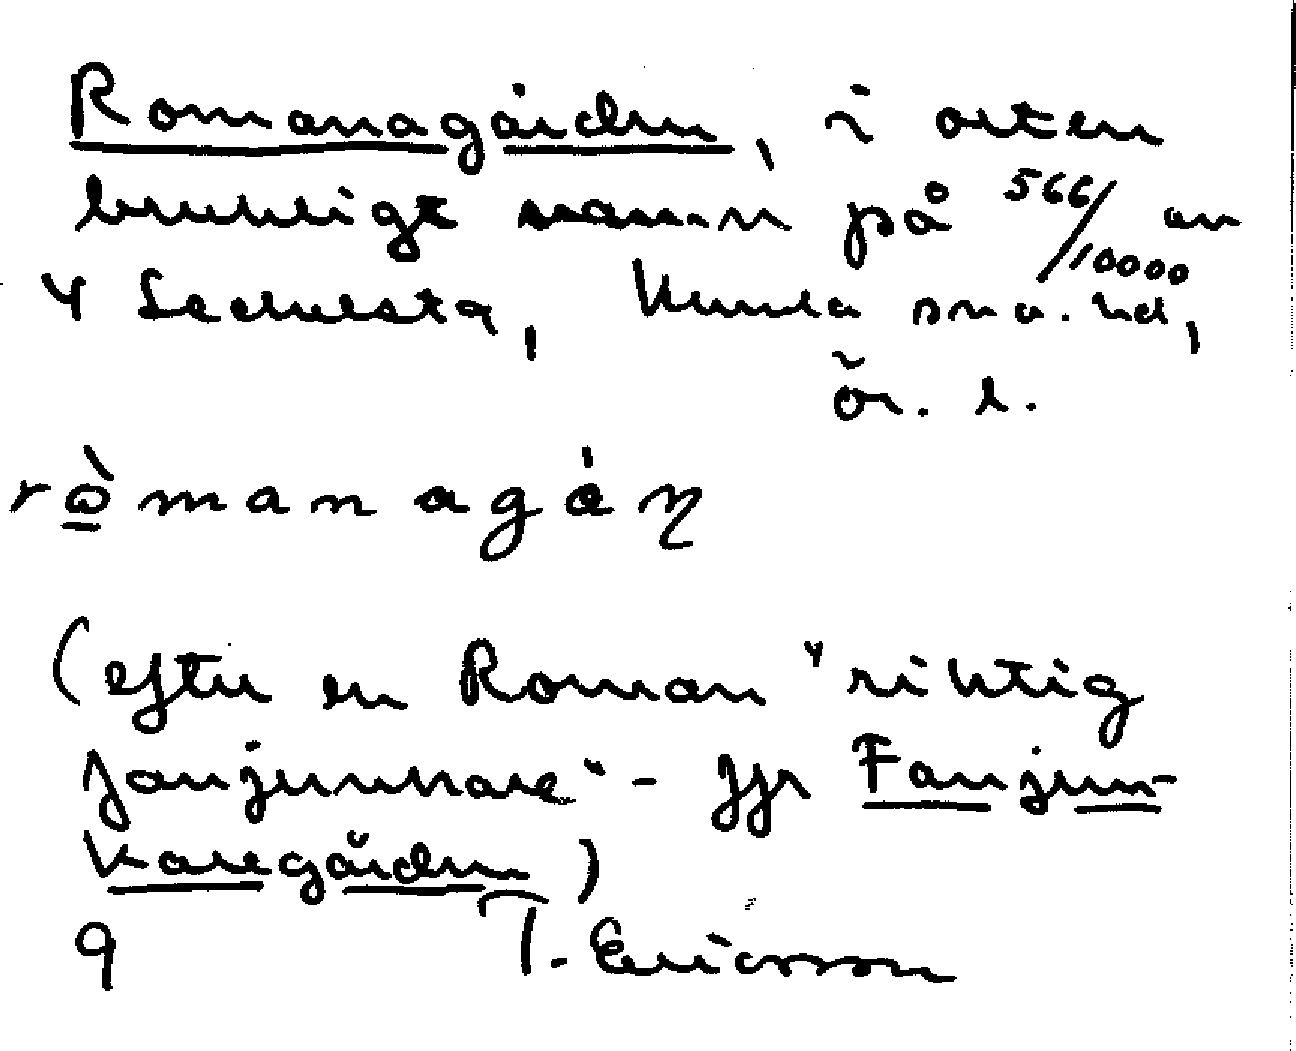 Romanagården, i orten
brukligt namn på 566/10000 av
4 Sechelsta, Kumla sn o. hd,
Ör. l.
rò̲managá̍ɳ
(efter en Roman "riktig
fanjunkare" - jfr Fanjun-
karegården)
9 T. Ericsson